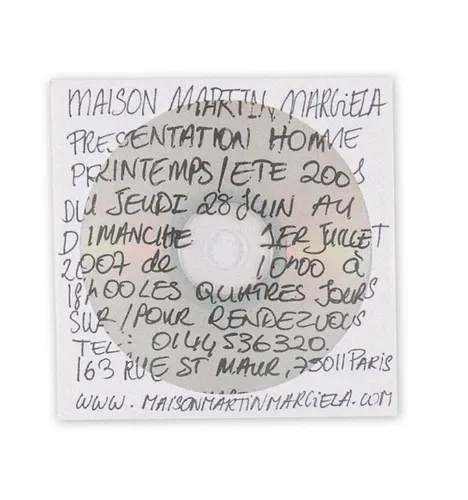 MAISON MARTIN MARGIELA
PRESENTATION HOMME
PRINTEMPS/ETE 2008
DU JEUDI 28 JUIN AU
DIMANCHE 1ER JUILLET
2007 de 10h00 à
18h00 LES QUATRES JOURS
SUR/POUR RENDEZVOUS
TEL: 0144536320
163 RUE ST MAUR, 75011 PARIS
WWW.MAISONMARTINMARGIELA.COM